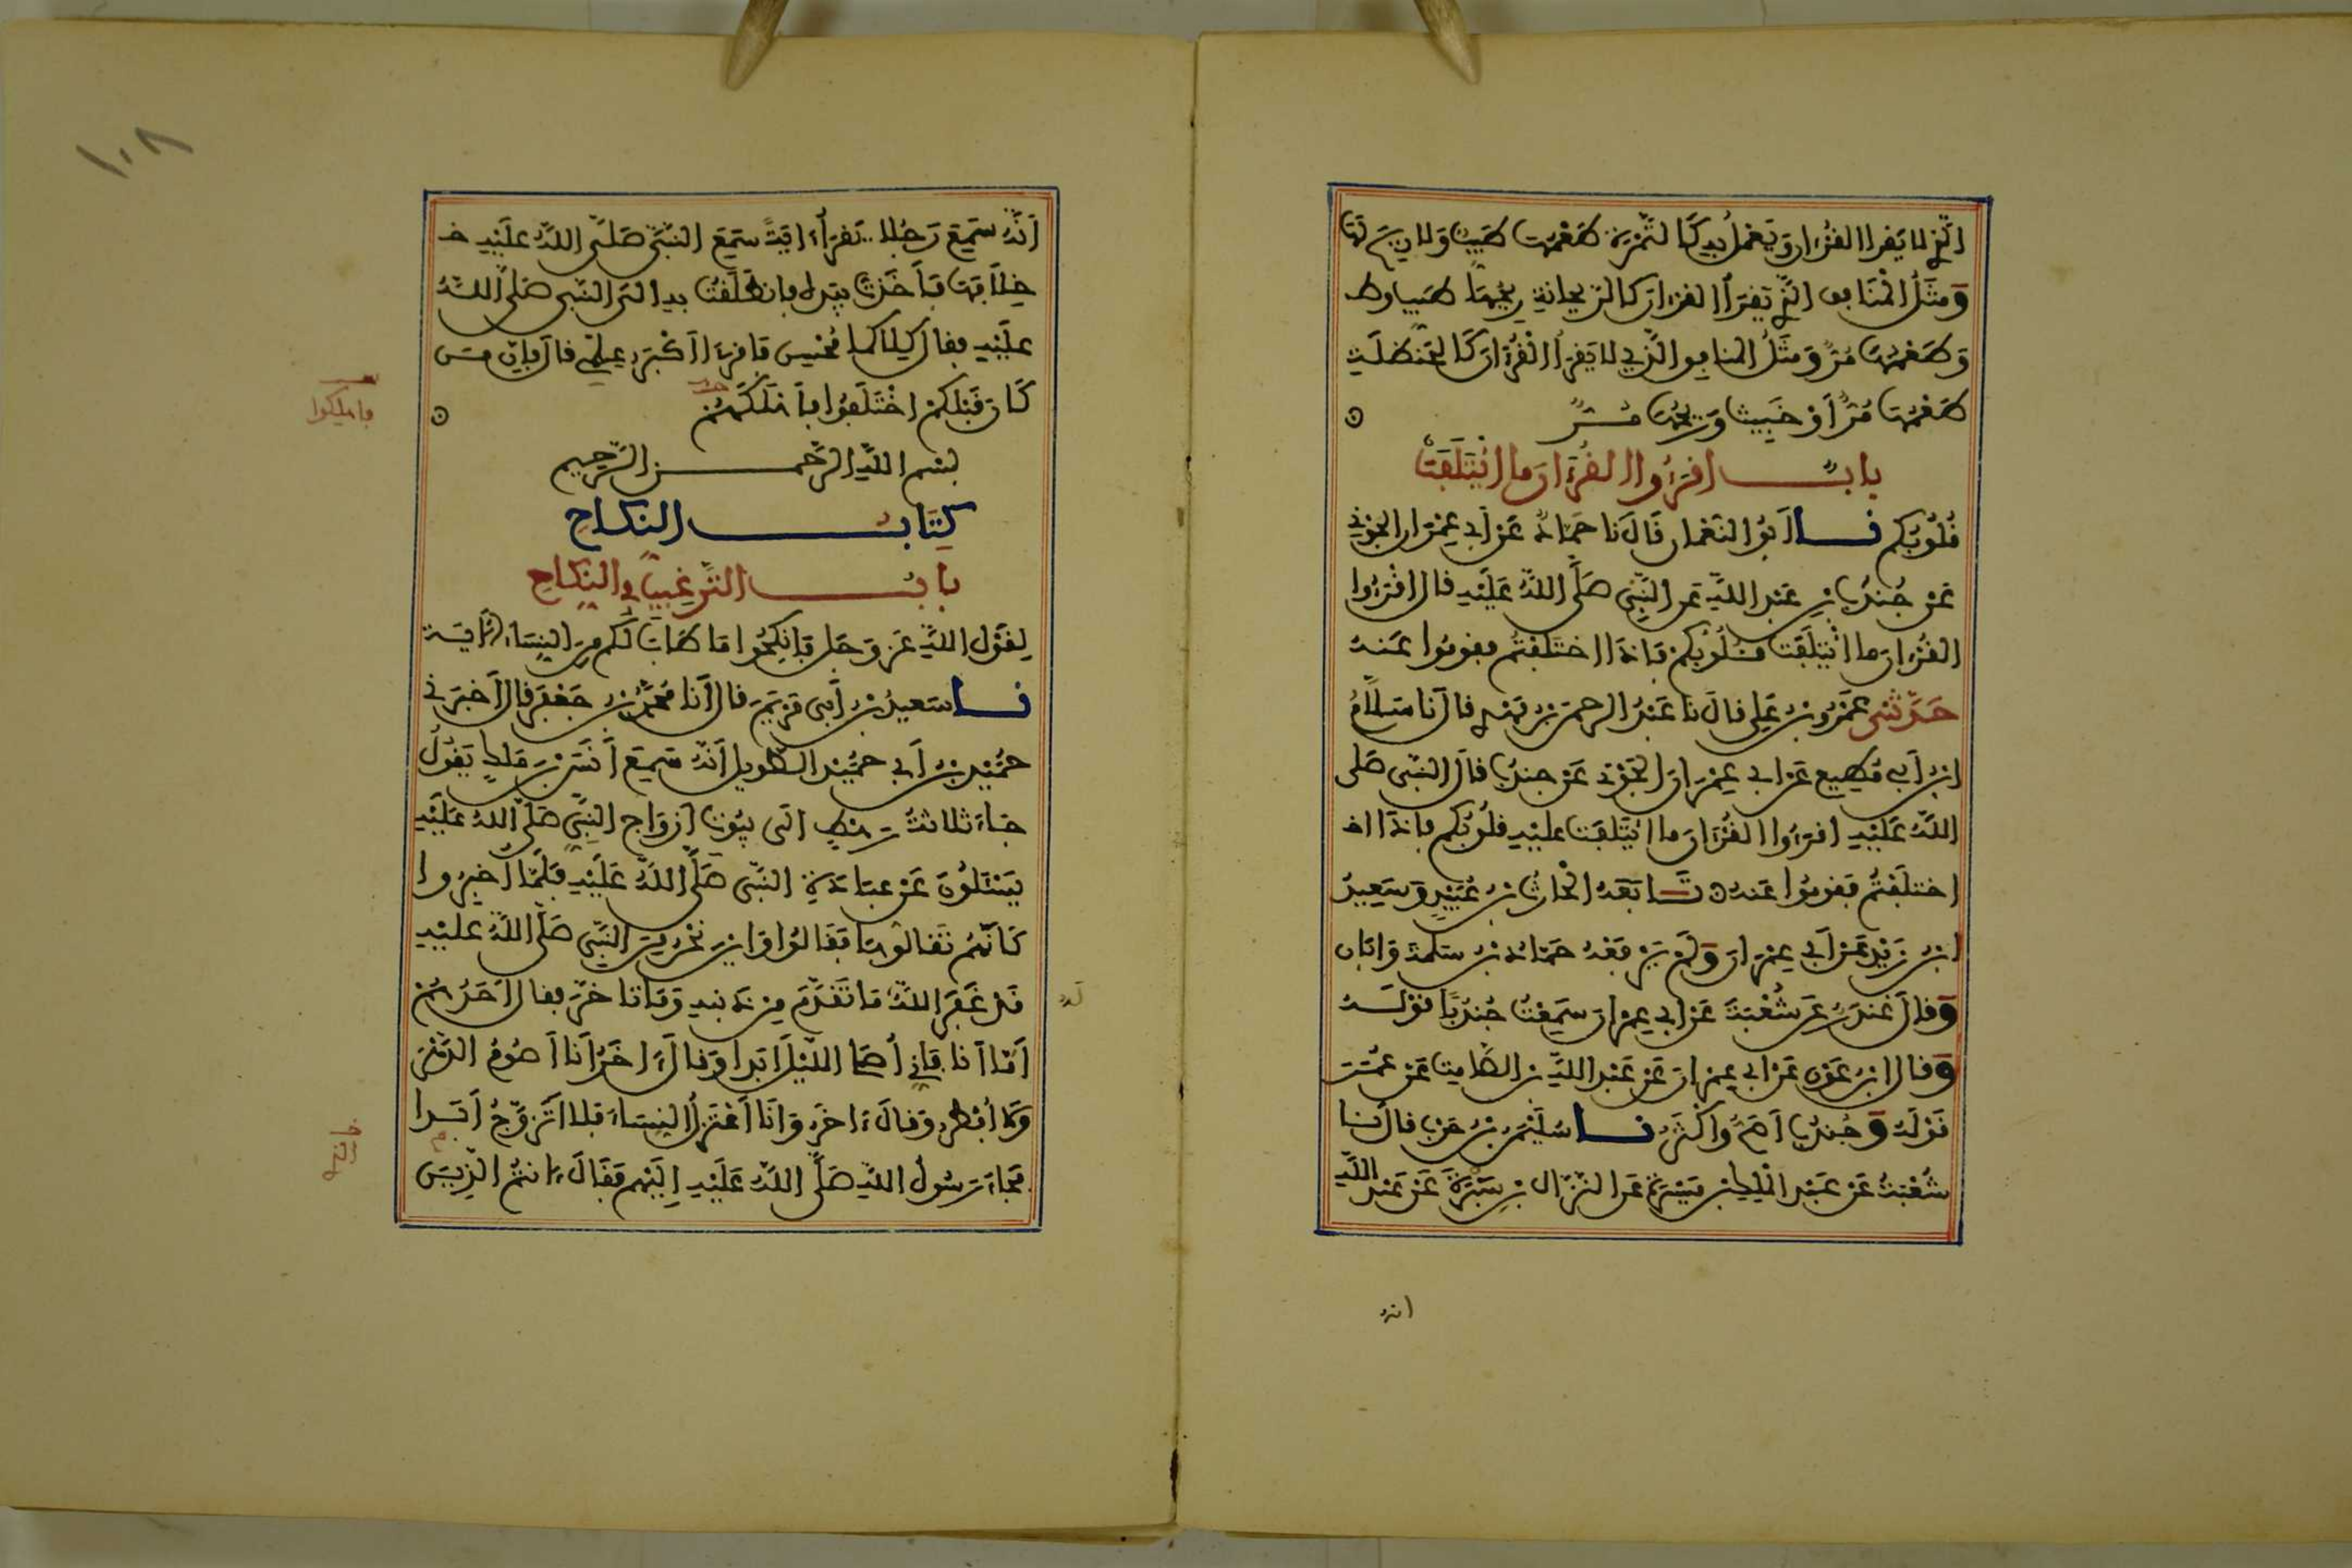 الذي لا يقرا القرءان ويعمل به كالتمرة طعمها طيب ولا ريح لها
ومثل المنافق الذي يقرأ القرءان كالريحانة ريحها طيب وط
وطعمها مر ومثل المنافق الذي لا يقرأ القرءان كالحنظلة
طعمها مر أو خبيث وريحها مر
باب اقرءوا القرءان ما ائتلفت
قلوبكم نا أبو النعمان قال نا حماد عن أبي عمران الجوني
عن جندب بن عبد الله عن النبي صلى الله عليه قال اقرءوا
القرءان ما ائتلفت قلوبكم فإذا اختلفتم فقوموا عنه
حدثني عمرو بن علي قال نا عبد الرحمن بن مهدي قال نا سلام
ابن أبي مطيع عن ابي عمران الجوني عن جندب قال النبي صلى
الله عليه اقرءوا القرءان ما ائتلفت عليه قلوبكم فإذا اخـ
اختلفتم فقوموا عنه تابعه الحارث بن عبيد وسعيد
ابن زيد عن أبي عمران ولم يرفعه حماد بن سلمة وابان
وقال غندر عن شعبة عن ابي عمران سمعت جندبا قوله
وقال ابن عون عن ابي عمران عن عبد الله بن الصامت عن عمر
قوله وجندب أصح وأكثر نا سليمن بن حرب قال نا
شعبة عن عبد الملك بن ميسرة عن النزال بن سبرة عن عبد الله
انه
١٠٨
أنه سمع رجلا يقرأ ءاية سمع النبي صلى الله عليه خـ
خلافها فأخذت بيده فانطلقت به الى النبي صلى الله
عليه فقال كلاكما محسن فاقرءا أكبر علمي قال فإن من
كان قبلكم اختلفوا فأهلكهم
فاهلكوا
بسم الله الرحمن الرحيم
كتاب النكاح
باب الترغيب في النكاح
لقول الله عز وجل فانكحوا ما طاب لكم من النساء الآية
نا سعيد بن أبي مريم قال أنا محمد بن جعفر قال أخبرني
حميد بن أبي حميد الطويل أنه سمع أنس بن ملك يقول
جاء ثلاثة رهط الى بيوت أزواج النبي صلى الله عليه
يسئلون عن عبادة النبي صلى الله عليه فلما أخبروا
كأنهم تقالوها فقالوا وأين نحن من النبي صلى الله عليه
قد غفر الله ما تقدم من ذنبه وما تاخر فقال أحدهم
له
أما أنا فإني أصلي الليل أبدا وقال ءاخر أنا أصوم الدهر
ولا أفطر وقال ءاخر وأنا أعتزل النساء فلا أتزوج أبدا
فجاء رسول الله صلى الله عليه إليهم فقال ءانتم الذين